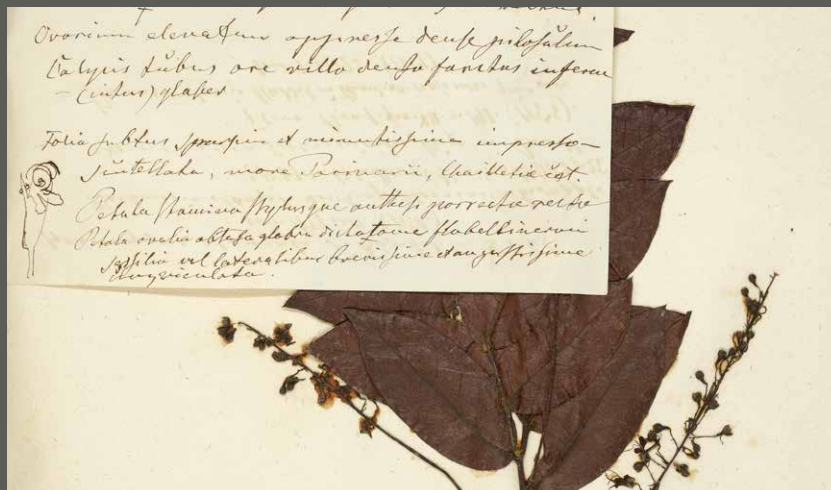 Ovarium elevatum appresse dense pilosulum
Calycis tubus ore villo denso farctus inferne
– (intus) glaber
Folia subtus sparsim et minutissime impresso-
scutellata, more Parinarii, Chailletiae cet.
Petala stamina stylusque anthesi porrecta recta
Petala ovalia obtusa glabra flabellinervia
sessilia vel lateralibus brevissime et angustissime
unguiculata.